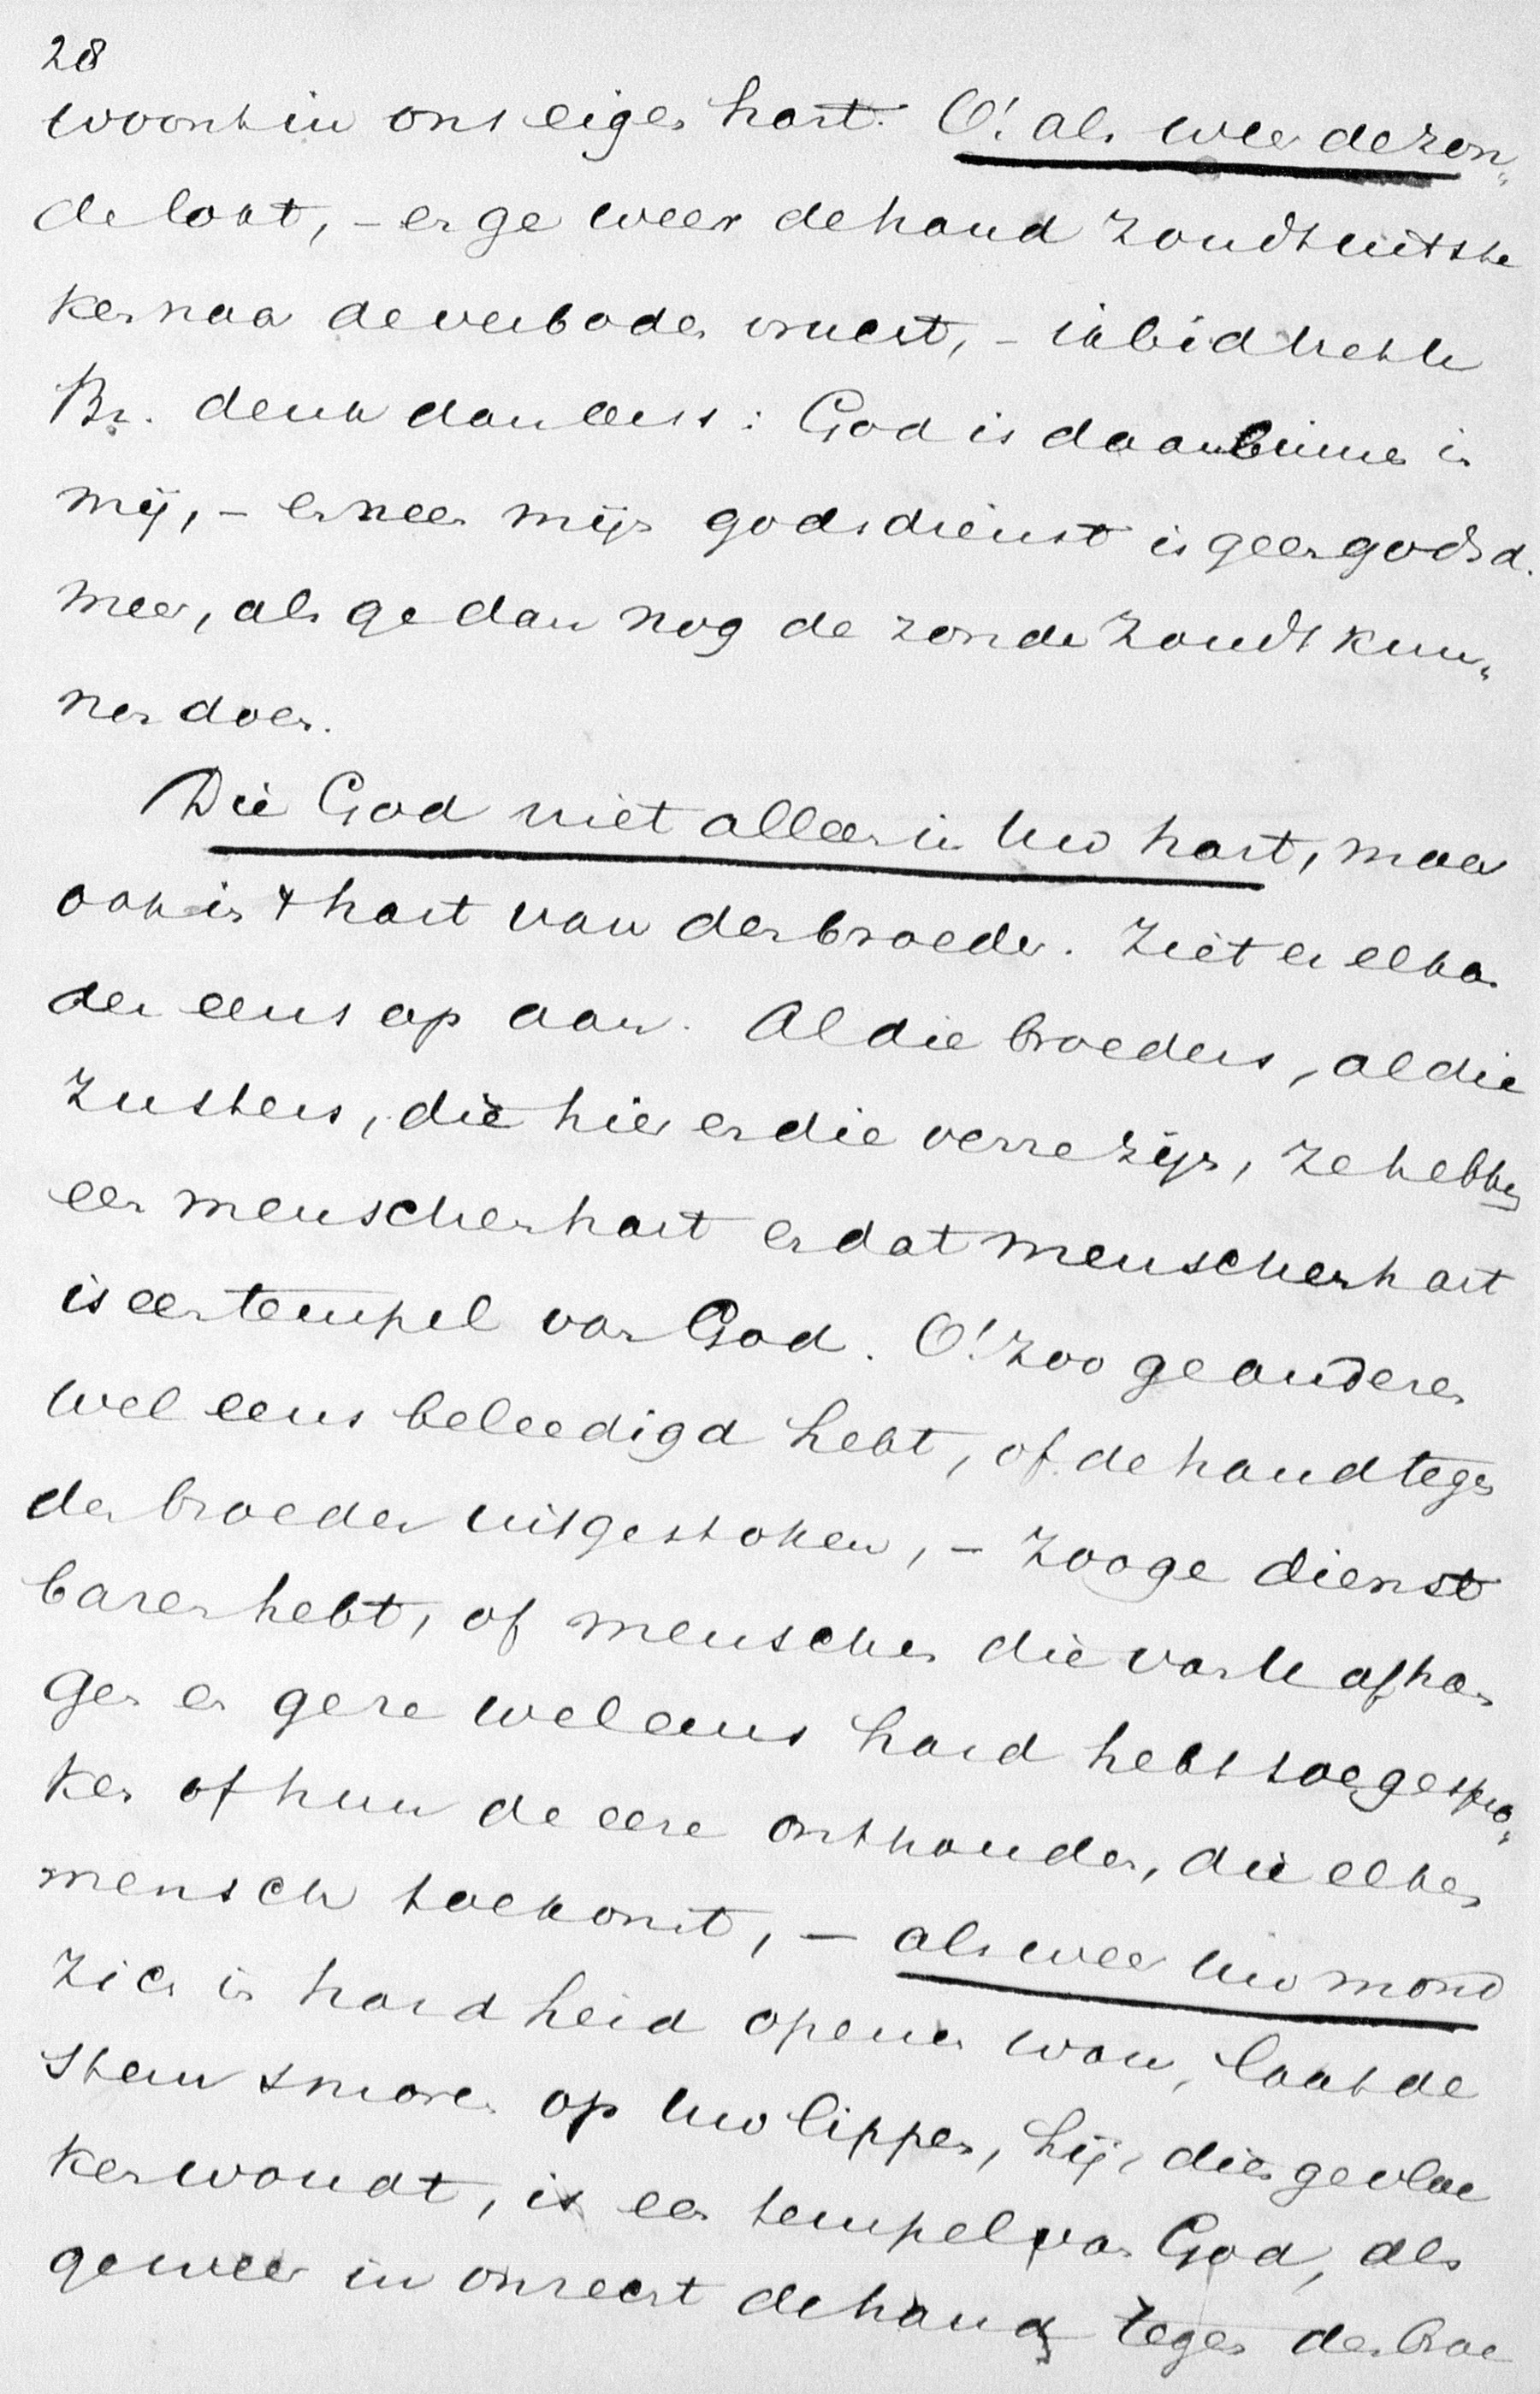 28
woont in ons eigen hart. O! als weer de zon„
de lokt, – en ge weer de hand zoudt uitste
ken naar de verboden vrucht, – ik bid U echte
Br. denk dan eens: God is daarbinnen in
mij, – en neen mijn godsdienst is geen godsd.
meer, als ge dan nog de zonde zoudt kun„
nen doen.
Die God niet alleen in Uw hart, maar
ook in 't hart van den broeder. Ziet er elkan
der eens op aan. Al die broeders, al die
zusters, die hier en die verre zijn, ze hebben
een menschenhart en dat menschenhart
is een tempel van God. O! zoo ge anderen
wel eens beleedigd hebt, of de hand tegen
den broeder uitgestoken, – zoo ge dienst
baren hebt, of menschen die van U afhan
gen en ge ze wel eens hard hebt toegespro„
ken of hun de eere onthouden, die elken
mensch toekomt, – als weer Uw mond
zich in hardheid openen wou, laat de
stem smoren op Uw lippen, hij, dien ge vloe
ken woudt, is een tempel van God, als
ge weer in onrecht de hand tegen den broe